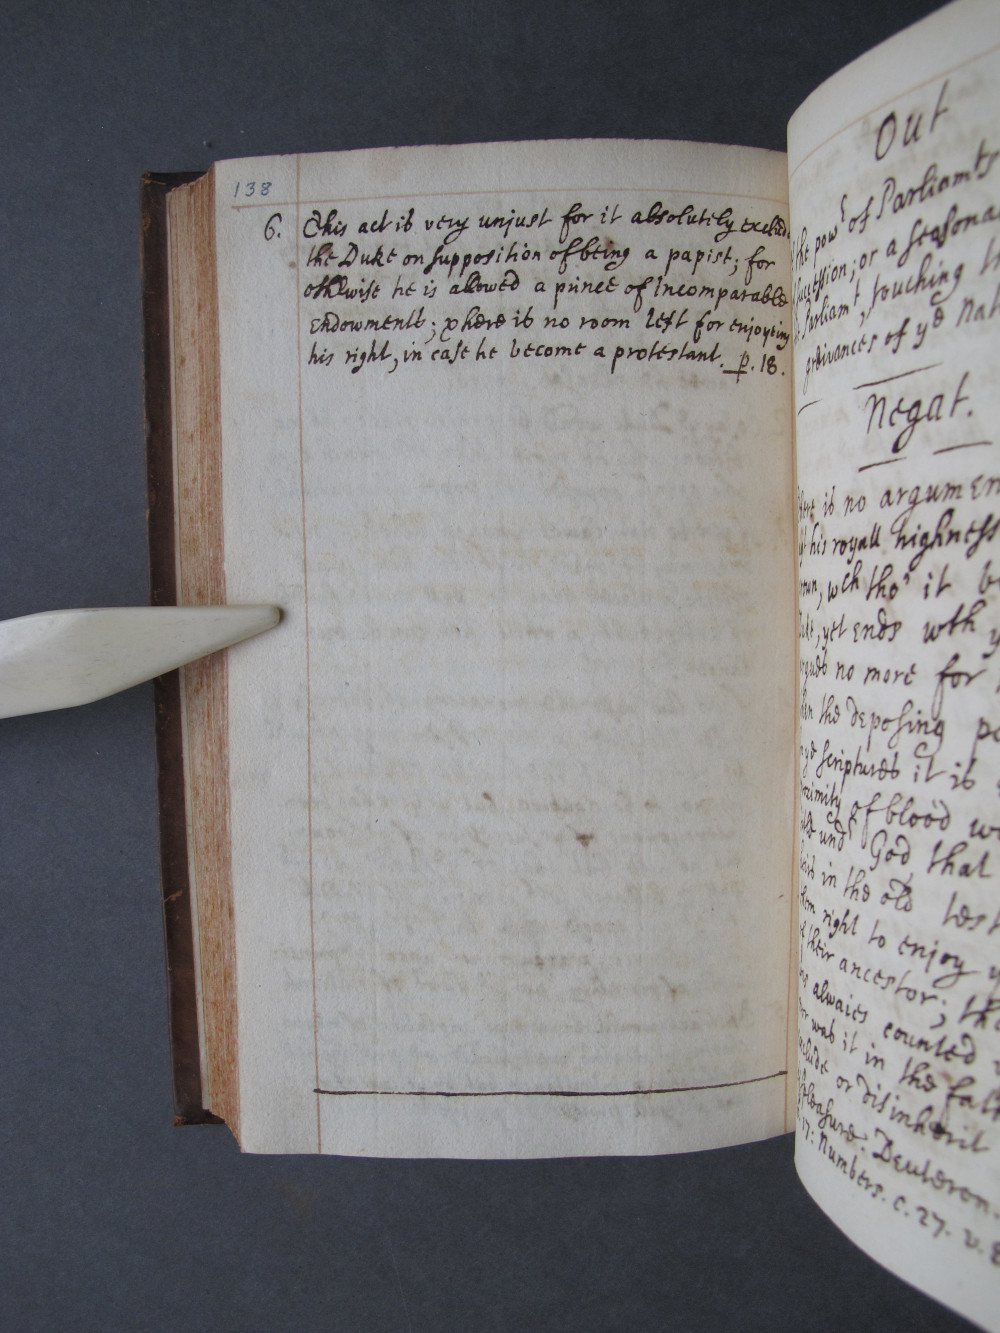 138
6. This act is very unjust for it absolutely exclud
the Duke on supposition of being a papist; for
othrwise he is allowed a prince of incomparable
endowments; where is no room left for enjoyeing
his right, in case he become a protestant. p. 18.
Out
the powr of Parliamts
succession; or a seasona
Parliamt, touching
grievances of ye Nat
Negat.
there is no argumen
his royall highness
wch tho' it b
yet ends wth y
no more for
the deposing po
ye scriptures it is
proximity of blood w
undr God, that
in the old test
right to enjoy y
their ancestor; th
alwaies counted
was it in the fath
or disinherit
pleasure: Deuteron.
17: Numbers. c. 27. v. 8